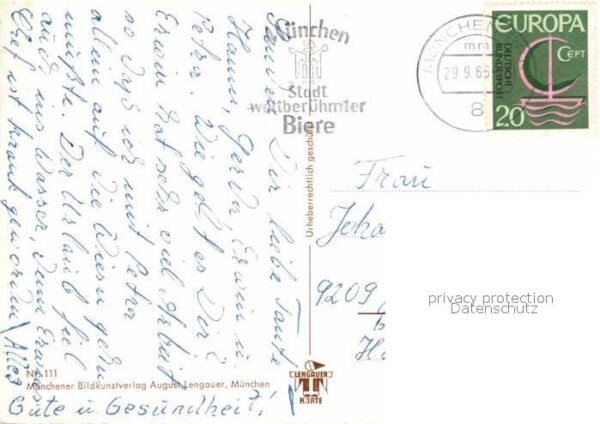 München
Stadt
weltberühmter
Biere
MÜNCHEN
29.9.66
8
EUROPA
CEPT
DEUTSCHE
BUNDESPOST
20
Dir liebe Tante
Hanni, Gerda, Erwin u.
Petra. Wie geht es Dir?
Erwin hat sehr viel Arbeit
so daß ich mit Petra
allein auf die Wiesn gehn
mußte. Der Urlaub fiel
auch ins Wasser, denn Erwins
Chef ist krank geworden. Alles
Gute u. Gesundheit!
Urheberrechtlich geschützt
Frau
Joha
9209
privacy protection
Datenschutz
Nr. 111
Münchener Bildkunstverlag August Lengauer, München
LENGAUER
KARTE